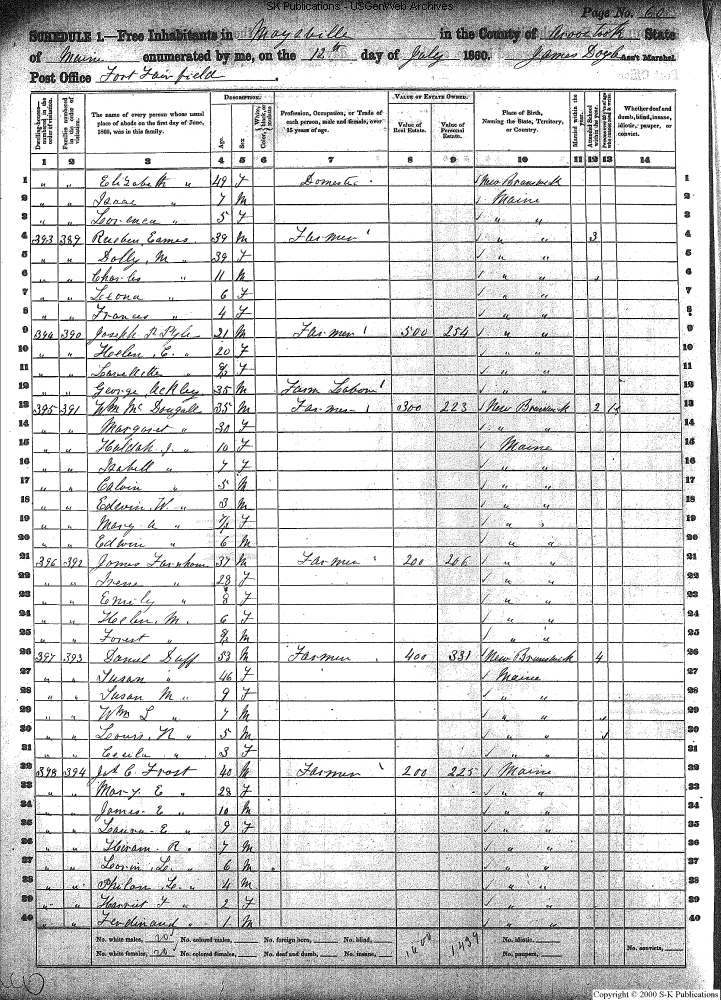 SK Publications - USGenWeb Archives
Page No. 60
SCHEDULE 1.—Free Inhabitants in Maysville in the County of Aroostook State
of Maine enumerated by me, on the 12th day of July 1860. James Doyle Ass't Marshal.
Post Office Fort Fairfield.
DESCRIPTION. VALUE OF ESTATE OWNED.
Dwelling-houses—numbered in the order of visitation. Families numbered in the order of visitation. The name of every person whose usual place of abode on the first day of June, 1860, was in this family. Age. Sex. Color, White, black, or mulatto. Profession, Occupation, or Trade of each person, male and female, over 15 years of age. Value of Real Estate. Value of Personal Estate. Place of Birth, Naming the State, Territory, or Country. Married within the year. Attended School within the year. Whether deaf and dumb, blind, insane, idiotic, pauper, or convict.
1 2 3 4 5 6 7 8 9 10 11 12 13 14
1 " " Elizabeth " 49 F Domestic New Brunswick 1
2 " " Isaac " 7 M Maine 2
3 " " " 5 F " " 3
4 393 389 Rueben Eames 39 M Farmer " " 3 4
5 " " Dolly, M " 39 F " " 5
6 " " Charles " 11 M " " 6
7 " " Leona " 6 F " " 7
8 " " Frances " 4 F " " 8
9 394 390 Joseph 21 M Farmer 500 254 " " 9
10 " " Helen, E. " 20 F " " 10
11 " " " F " " 11
12 " " George Ackley 35 M Farm Labour " " 12
13 395 391 Wm McDougall 35 M Farmer 300 223 New Brunswick 2 13
14 " " Margaret " 30 F " " 14
15 " " Huldah J. " 10 F Maine 15
16 " " Isabell " 7 F " " 16
17 " " Calvin " 5 M " " 17
18 " " Edwin W. " 3 M " " 18
19 " " Mary A " F " " 19
20 " " Edwin " 6 M " " 20
21 396 392 James Farnham 37 M Farmer 200 206 " " 21
22 " " Irene " 28 F " " 22
23 " " Emily " 8 F " " 23
24 " " Helen, M. 6 F " " 24
25 " " Forest " M " " 25
26 397 393 Daniel Duff 53 M Farmer 400 331 New Brunswick 4 26
27 " " Susan " 46 F Maine 27
28 " " Susan M " 9 F " " 28
29 " " Wm L " 7 M " " 29
30 " " Louis, R " 5 M " " 30
31 " " Cecila " 3 F " " 31
32 398 394 C. Frost 40 M Farmer 200 225 Maine 32
33 " " Mary E " 28 F " " 33
34 " " James E " 10 M " " 34
35 " " Laura E " 9 F " " 35
36 " " Hiram R. " 7 M " " 36
37 " " Lorin, L. " 6 M " " 37
38 " " " 4 M " " 38
39 " " Harriet F " 2 F " " 39
40 " " Ferdinand " 1 M " " 40
No. white males, 20 No. colored males, No. foreign born, No. blind, 1600 1439 No. idiotic, No. convicts,
No. white females, 20 No. colored females, No. deaf and dumb, No. insane, No. paupers,
Copyright © 2000 S-K Publications